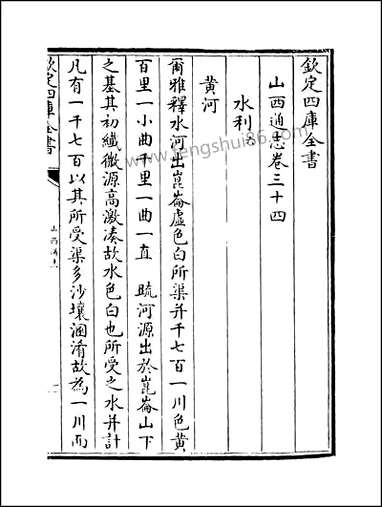 欽定四庫全書
山西通志卷三十四
水利六
黄河
爾雅釋水河出崑崙虛色白所渠并千七百一川色黄
百里一小曲千里一曲一直 䟽河源出於崑崙山下
之基其初纖微源高激凑故水色白也所受之水并計
凡有一千七百以其所受渠多沙壤溷淆故為一川而
欽定四庫全書
山西通志
www.fengshui86.com